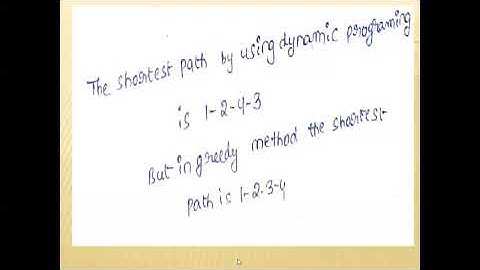 The shortest path by using dynamic programing
is 1-2-4-3
But in greedy method the shortest
path is 1-2-3-4